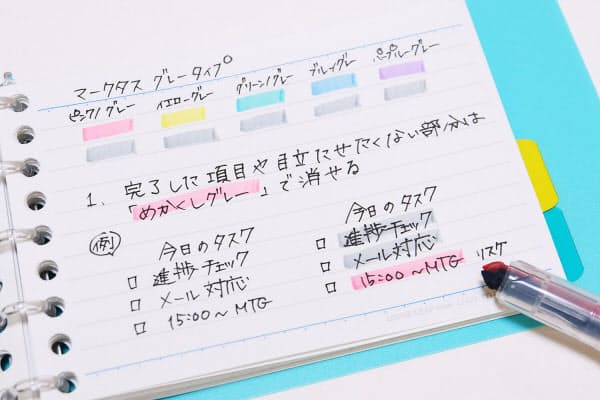 マークタス グレータイプ
ピンク/グレー イエロー/グレー グリーン/グレー ブルー/グレー パープル/グレー
1. 完了した項目や目立たせたくない部分は
「めかくしグレー」で消せる
例
今日のタスク
□ 進捗チェック
□ メール対応
□ 15:00〜MTG
今日のタスク
□ 進捗チェック
□ メール対応
□ 15:00〜MTG リスケ